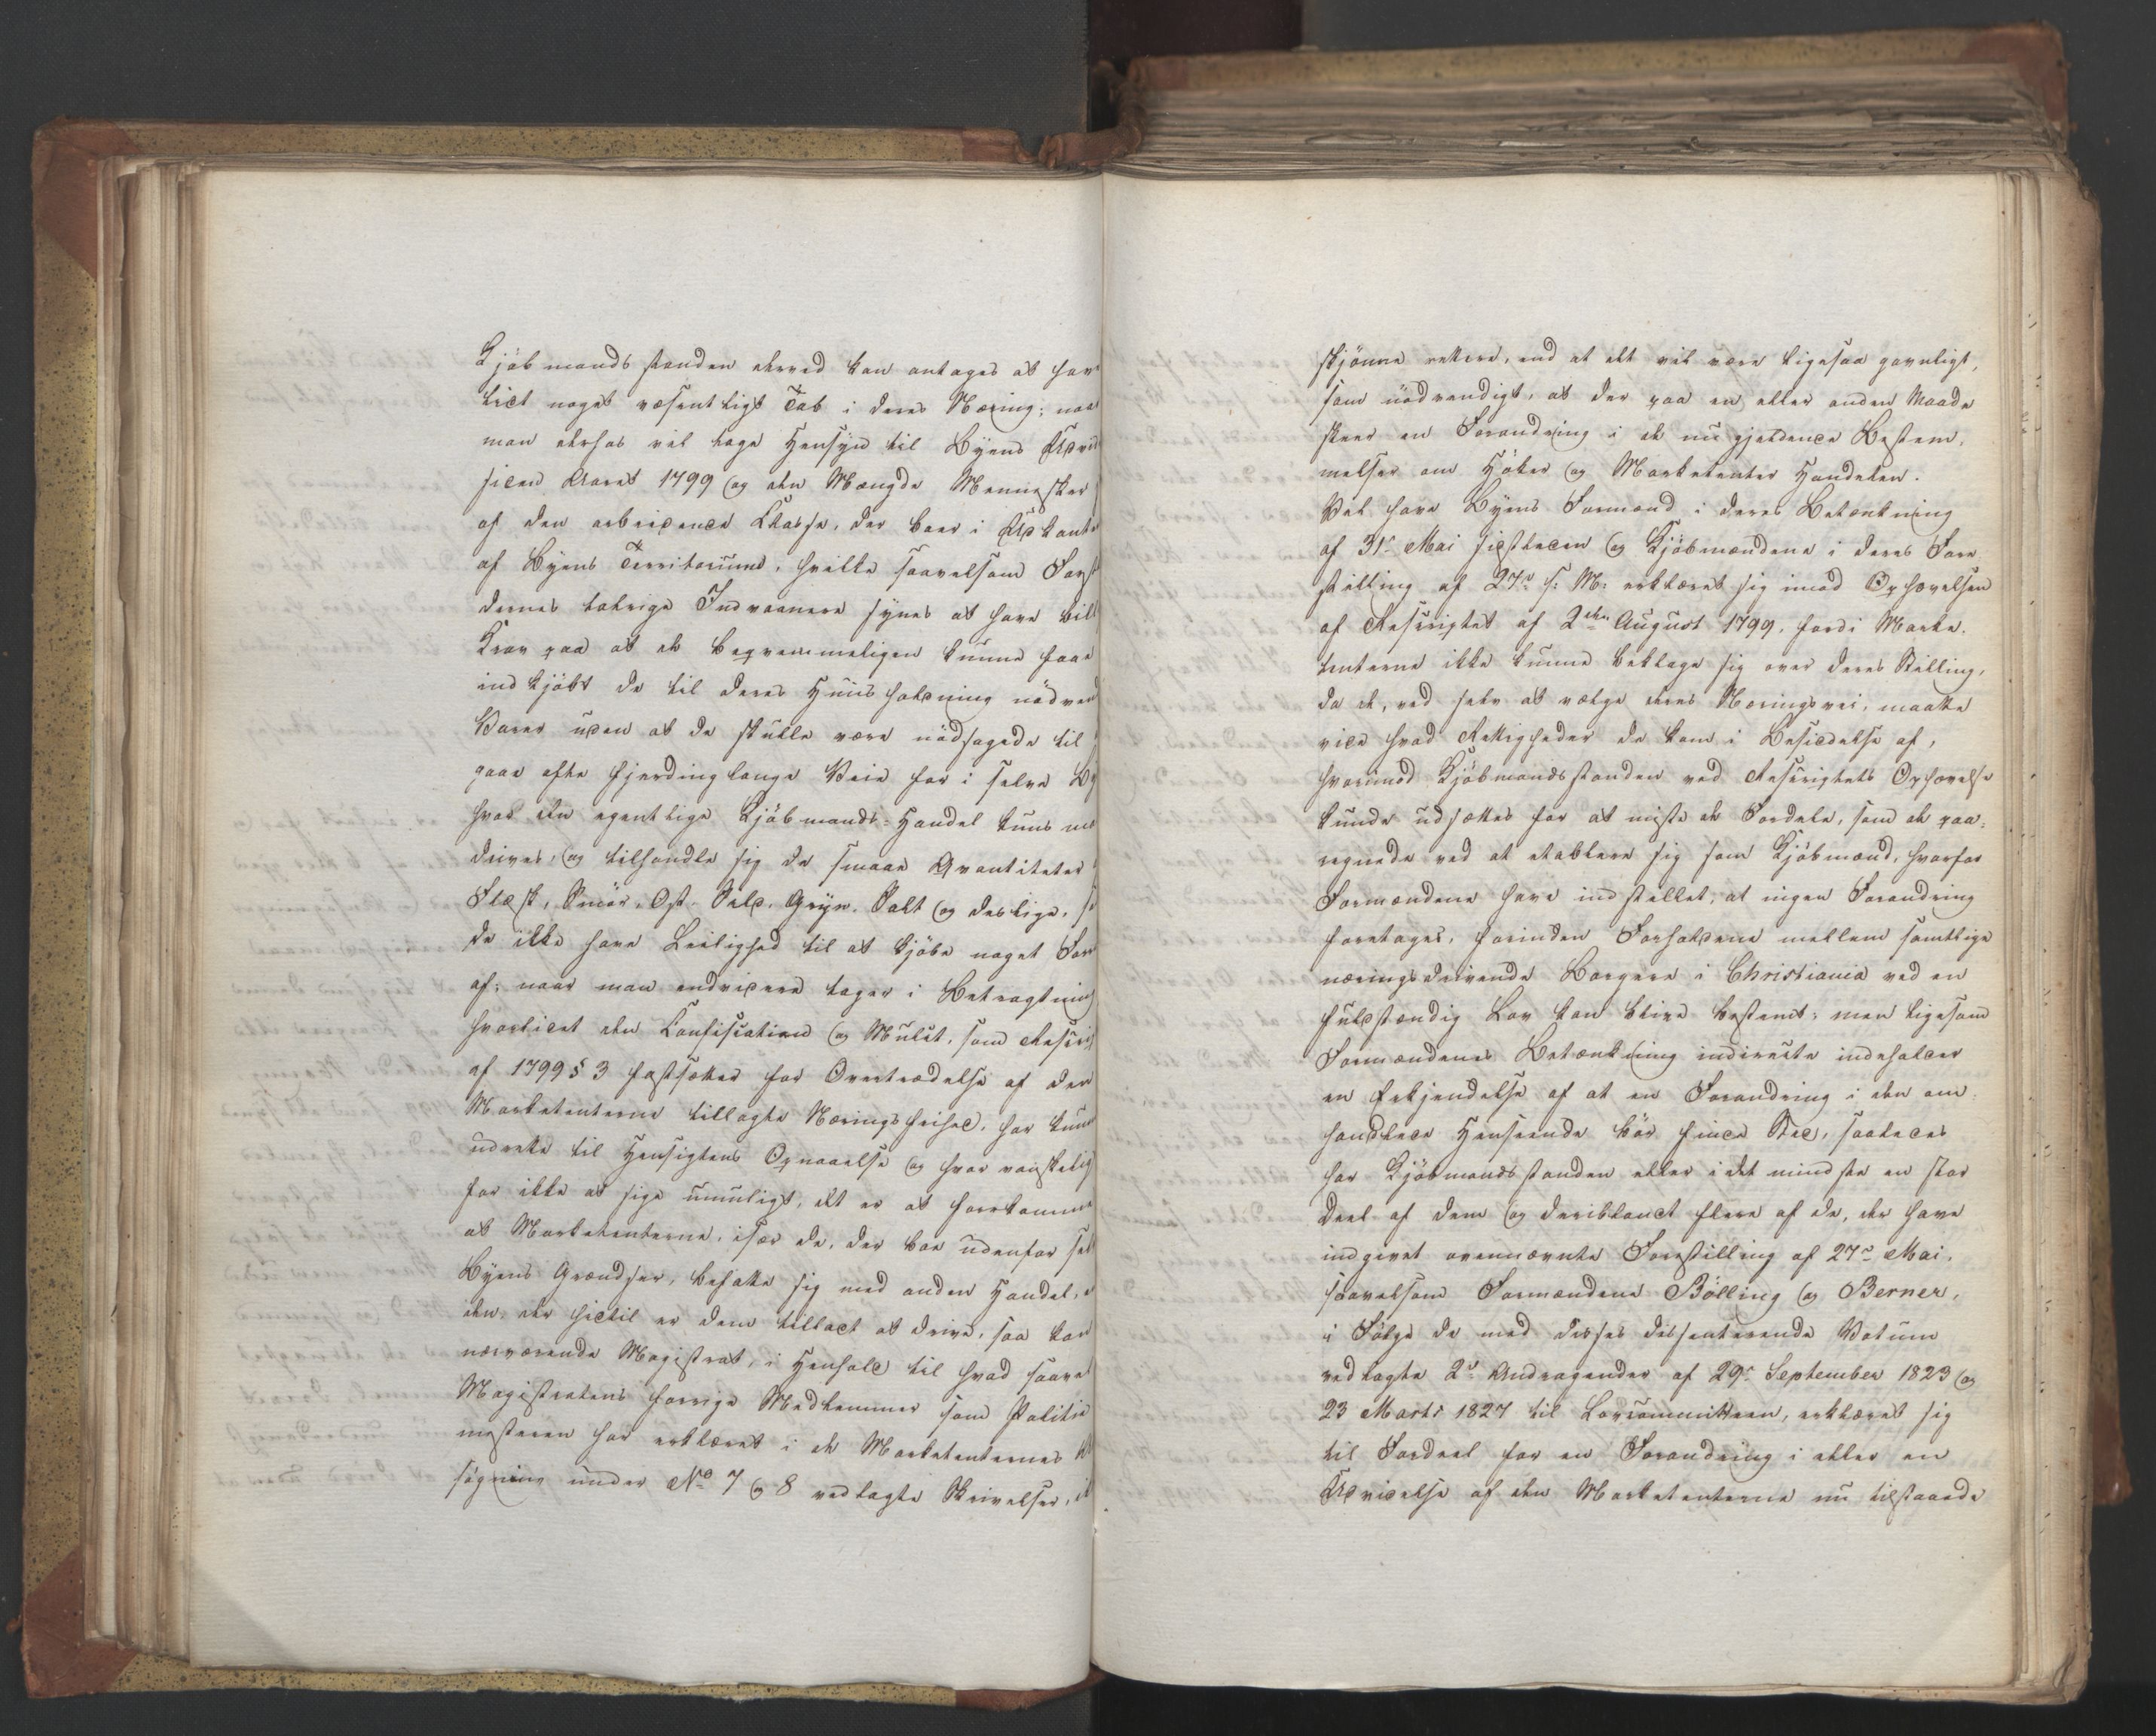 Kjöbmandsstanden derved kan antages at hav
lidt noget væsentligt Tab i deres Næring; naar
man derhos vil tage Hensyn til Byens Udvid
siden Aaret 1799 og den Mængde Mennesker
af den arbeidende Classe, der boer i Udkante
af Byens Territorium, hvilke saavelsom Forst
dernes talrige Indvaanere synes at have bill
Krav paa at de beqvemmeligen kunne faae
indkjöbt de til deres Huusholdning nödvend
Varer uden at de skulle være nödsagede til
gaae ofte fjerdinglange Veie for i selve By
hvor den egentlige Kjöbmands-Handel kuns maa
drives, og tilhandle sig de smaae Qvantiteter
Flæsk, Smör, Ost, Sild, Gryn, Salt og deslige, so
de ikke have Leilighed til at kjöbe noget For
af; naar man endvidere tager i Betragtning
hvorlidet den Confiscation og Mulct, som Rescri
af 1799 § 3 fastsætter for Overtrædelse af den
Marketenterne tillagte Næringsfrihed, har kun
udrette til Hensigtens Opnaaelse og hvor vanskelig
for ikke at sige umuligt, det er at forekomme
at Marketenterne, især de, der boe udenfor sel
Byens Grændser, befatte sig med anden Handel, e
den, der hidtil er dem tilladt at drive, saa kan
nærværende Magistrat, i Henhold til hvad saavel
Magistratens forrige Medlemmer som Politie
mesteren har erklæret i de Marketenternes A
søgning under No 7 og 8 vedlagte Skrivelser, ik
skjönne rettere, end at det vil være ligesaa gavnligt,
som nödvendigt, at der paa en eller anden Maade
skeer en Forandring i de nu gjeldende Bestem¬
melser om Höker og Marketenter Handelen.
Vel have Byens Formænd i deres Betænkning
af 31te Mai sidstleden og Kjöbmændene i deres Fore¬
stilling af 27de s: M: erklæret sig imod Ophævelsen
af Rescriptet af 2den August 1799, fordi Marke¬
tenterne ikke kunne beklage sig over deres Stilling,
da de, ved selv at vælge deres Næringsvei, maatte
vide hvad Rettigheder de kom i Besiddelse af,
hvorimod Kjöbmandsstanden ved Rescriptets Ophævelse
kunde udsættes for at miste de Fordele, som de paa¬
regnede ved at etablere sig som Kjöbmænd, hvorfor
Formændene have indstillet, at ingen Forandring
foretages, forinden Forholdene mellem samtlige
næringsdrivende Borgere i Christiania ved en
fuldstændig Lov kan blive bestemt; men ligesom
Formændenes Betænkning indirecte indeholder
en Erkjendelse af at en Forandring i den om¬
handlede Henseende bör finde Sted, saaledes
har Kjöbmandsstanden eller i det mindste en stor
Deel af dem og deriblandt flere af de, der have
indgivet ovennævnte Forestilling af 27de Mai,
saavelsom Formændene Bölling og Berner,
i Fölge de med disses dissenterende Votum
vedlagte 2de Andragender af 29de September 1823 og
23 Marts 1827 til Lovcommitteen, erklæret sig
til Fordeel for en Forandring i eller en
Udvidelse af den Marketenterne nu tilstaaede